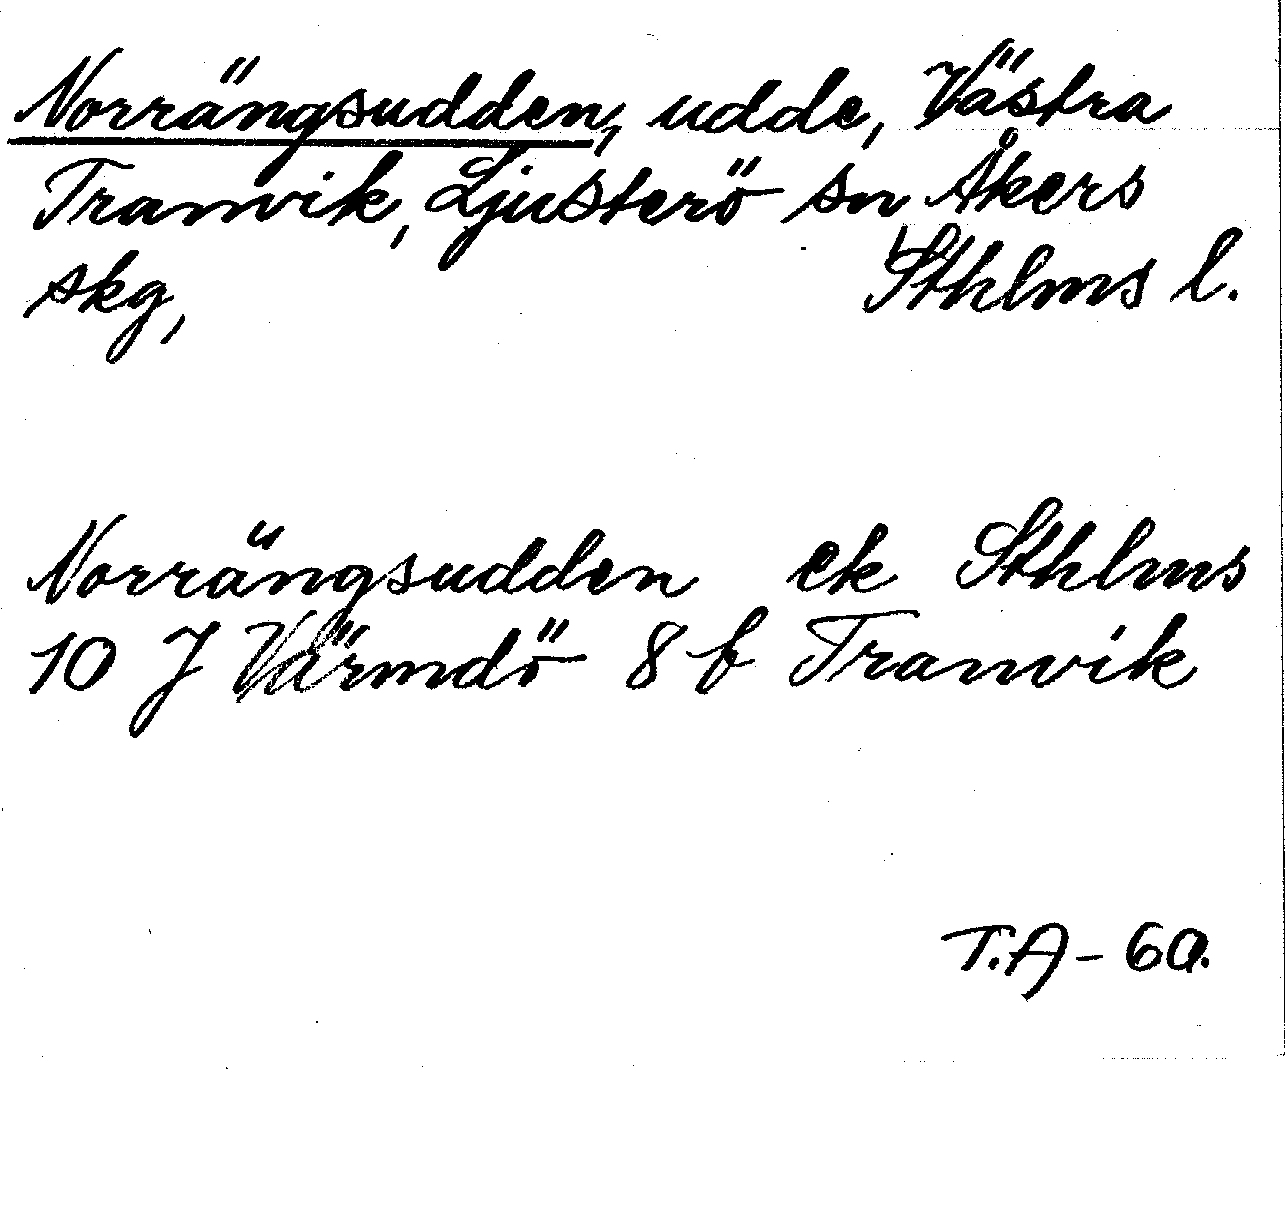 Norrängsudden, udde, Västra
Tranvik, Ljusterö sn Åkers
skg, Sthlms l.
Norrängsudden ek Sthlms
10 J Värmdö 8 f Tranvik
T.A - 60.